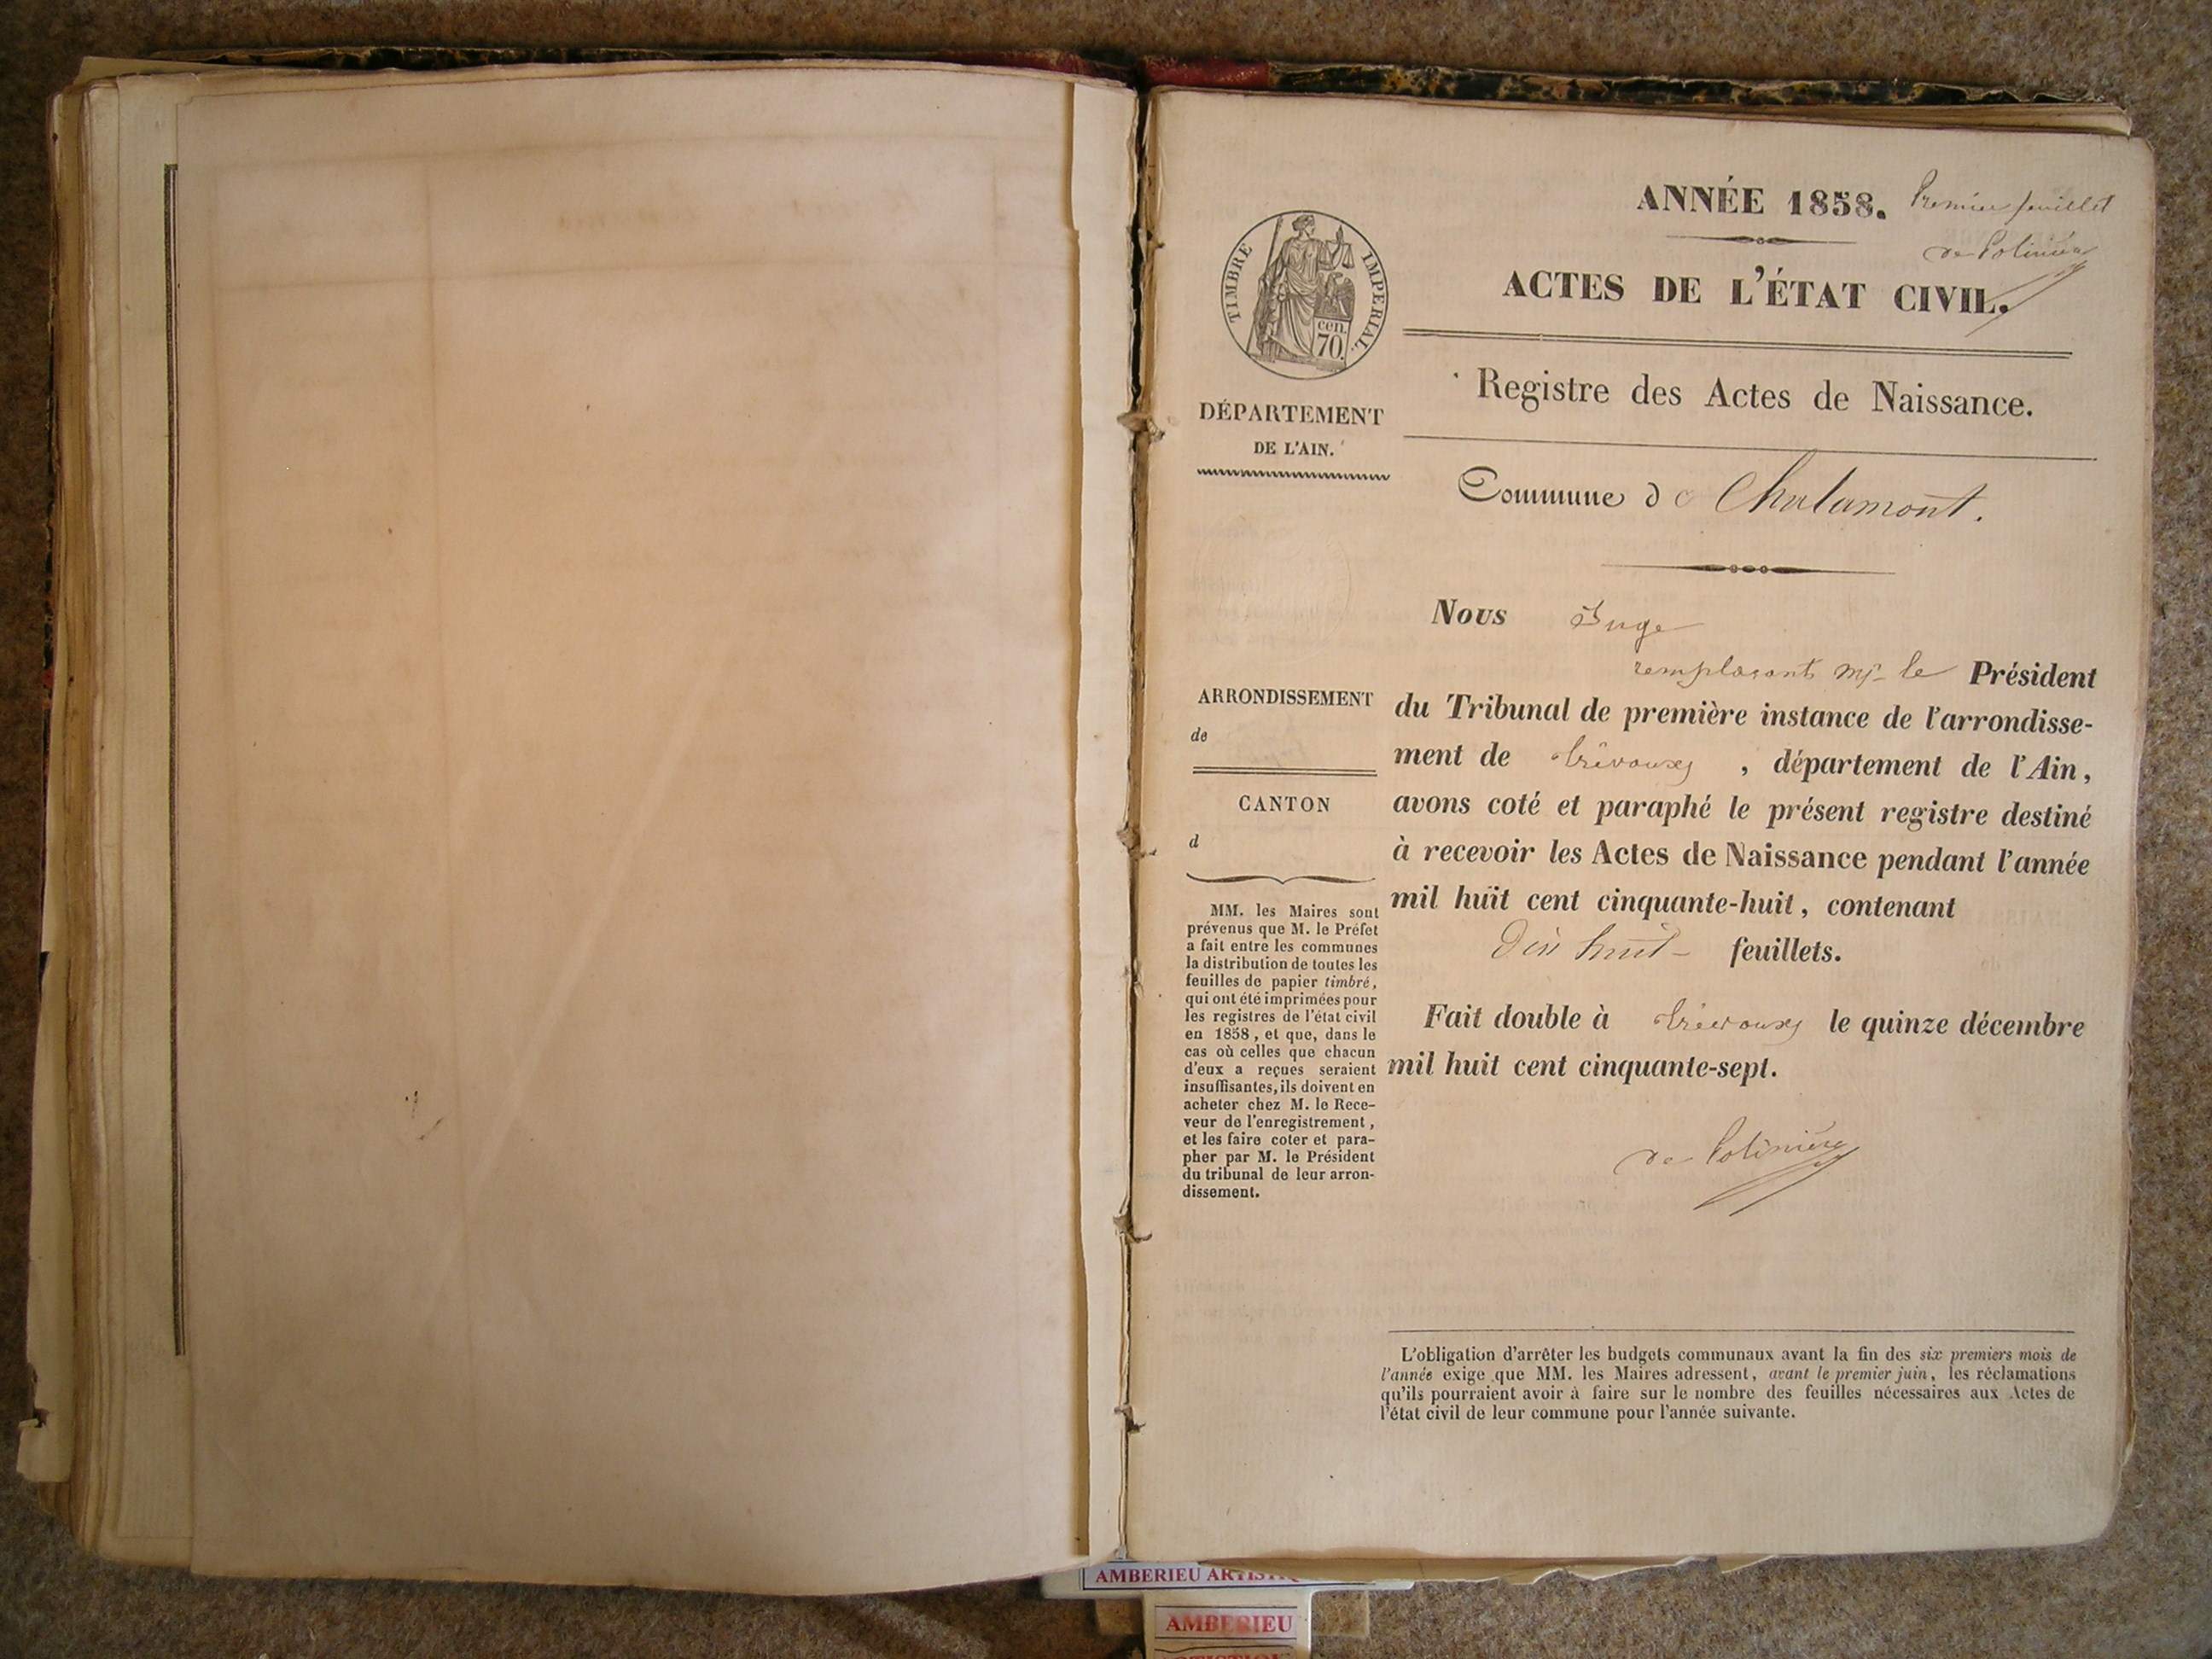 ANNÉE 1858. Premier feuillet
de Polinière
ACTES DE L'ÉTAT CIVIL.
TIMBRE IMPERIAL.
cen.
70.
Registre des Actes de Naissance.
DÉPARTEMENT
DE L'AIN.
Commune de Chalamont.
Nous Juge
remplaçant Mr le Président
du Tribunal de première instance de l'arrondisse-
ment de Trévoux, département de l'Ain,
avons coté et paraphé le présent registre destiné
à recevoir les Actes de Naissance pendant l'année
mil huit cent cinquante-huit, contenant
Dix huit feuillets.
Fait double à Trévoux le quinze décembre
mil huit cent cinquante-sept.
de Polinière
ARRONDISSEMENT
de
CANTON
d
MM. les Maires sont
prévenus que M. le Préfet
a fait entre les communes
la distribution de toutes les
feuilles de papier timbré,
qui ont été imprimées pour
les registres de l'état civil
en 1858, et que, dans le
cas où celles que chacun
d'eux a reçues seraient
insuffisantes, ils doivent en
acheter chez M. le Rece-
veur de l'enregistrement,
et les faire coter et para-
pher par M. le Président
du tribunal de leur arron-
dissement.
L'obligation d'arrêter les budgets communaux avant la fin des six premiers mois de
l'année exige que MM. les Maires adressent, avant le premier juin, les réclamations
qu'ils pourraient avoir à faire sur le nombre des feuilles nécessaires aux Actes de
l'état civil de leur commune pour l'année suivante.
AMBERIEU
AMBERIEU